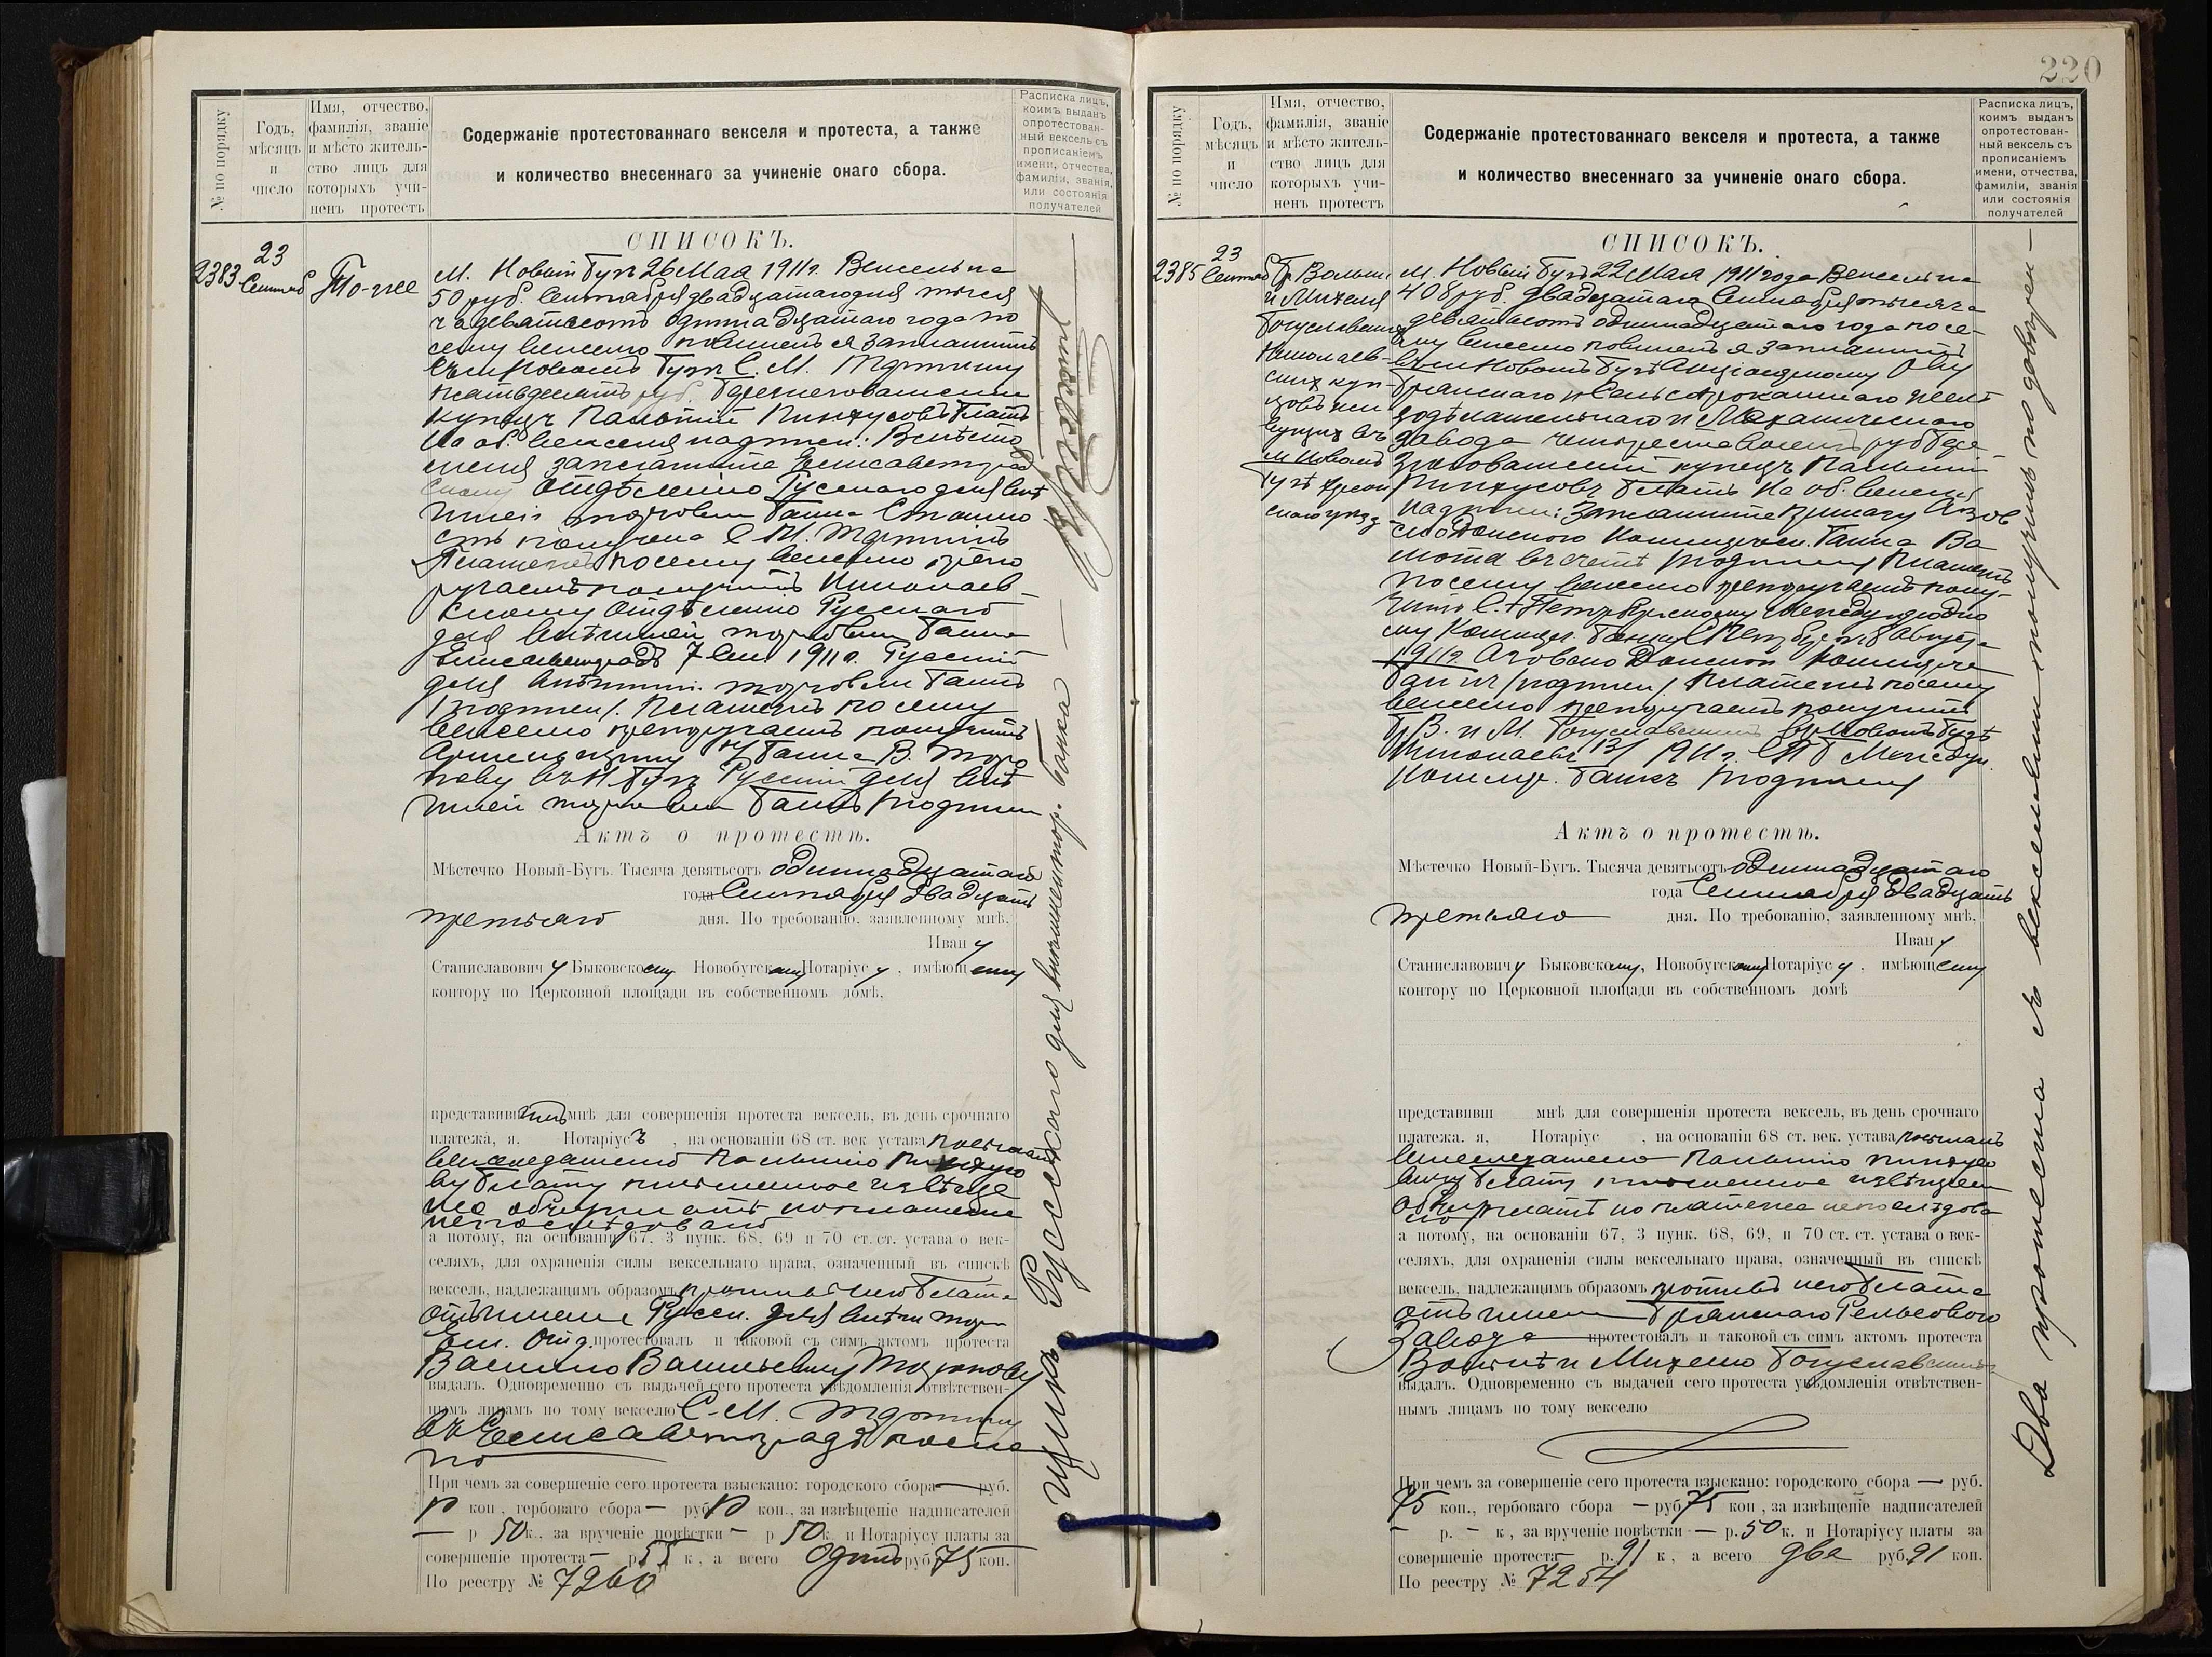 220
№ по порядку
Годъ,
мѣсяцъ
и
число
Имя, отчество,
фамилія, званіе
и мѣсто житель-
ство лицъ для
которыхъ учи-
ненъ протестъ
Содержаніе протестованнаго векселя и протеста, а также
и количество внесеннаго за учиненіе онаго сбора.
Расписка лицъ,
коимъ выданъ
опротестован-
ный вексель съ
прописаніемъ
имени, отчества,
фамиліи, званія,
или состоянія
получателей
СПИСОКЪ.
2383
23
То-же
М. Новый Бугъ 26 Мая 1911 г. Вексель на
50 руб. Сентября двадцатаго дня тыся
ча девятьсотъ одиннадцатаго года по
сему векселю повиненъ я заплатить
въ м Новомъ Бугѣ С. М.
пятьдесятъ руб. Березнеговатскій
купецъ Пинхусовъ
На об. векселя надписи: Вмѣсто
меня заплатите Елисаветград
скому Отдѣленію Русскаго для внѣ
шней торговли Банка
получена С М.
Платежъ по сему векселю препо
ручаемъ получить Николаев-
скому Отдѣленію Русскаго
для Внѣшней торговли Банка
Елисаветградъ 7 Сен 1911 г. Русскій
для Внѣшней торговли Банкъ
/подписи/. Платежъ по сему
векселю препоручаетъ получить
Банка В.
въ Н. Бугѣ Русскій для внѣ
шней торговли Банкъ /подписи
Актъ о протестѣ.
Мѣстечко Новый-Бугъ. Тысяча девятьсотъ одиннадцатаго
года Сентября двадцать
третьяго дня. По требованію, заявленному мнѣ,
Ивану
Станиславовичу Быковскому Новобугскому Нотаріусу, имѣющему
контору по Церковной площади въ собственномъ домѣ,
представившимъ мнѣ для совершенія протеста вексель, въ день срочнаго
платежа, я, Нотаріусъ, на основаніи 68 ст. век устава послалъ
векселедателю Пинхусо
ву письменное извѣще
ніе
непослѣдовало
а потому, на основаніи 67, 3 пунк. 68, 69 и 70 ст. ст. устава о век-
селяхъ, для охраненія силы вексельнаго права, означенный въ спискѣ
вексель, надлежащимъ образомъ противъ него
отъ имени Русск. для внѣшн торг
Отд. протестовалъ и таковой съ симъ актомъ протеста
Василію Васильевичу
выдалъ. Одновременно съ выдачей сего протеста увѣдомленія отвѣтствен-
нымъ лицамъ по тому векселю С. М.
въ Елисаветградъ посла
но
При чемъ за совершеніе сего протеста взыскано: городского сбора — руб.
10 коп, гербоваго сбора — руб 10 коп., за извѣщеніе надписателей
— р 50 к., за врученіе повѣстки — р 50 к. и Нотаріусу платы за
совершеніе протеста — р 55 к, а всего Одинъ руб 75 коп.
По реестру № 7260
Русскаго для внѣшней тор. банка —
№ по порядку
Годъ,
мѣсяцъ
и
число
Имя, отчество,
фамилія, званіе
и мѣсто житель-
ство лицъ для
которыхъ учи-
ненъ протестъ
Содержаніе протестованнаго векселя и протеста, а также
и количество внесеннаго за учиненіе онаго сбора.
Расписка лицъ,
коимъ выданъ
опротестован-
ный вексель съ
прописаніемъ
имени, отчества,
фамиліи, званія
или состоянія
получателей
СПИСОКЪ.
2385
23
и Михеля
Николаев-
скихъ куп-
цовъ
въ
м Новомъ
Бугѣ Херсон
скаго уѣзд
М. Новый Бугъ 22 Мая 1911 года Вексель на
408 руб. Двадцатаго Сентября тысяча
девятьсотъ одиннадцатаго года по се-
му векселю повиненъ я заплатить
въ м Новомъ Бугѣ Акціонерному О-ву
Брянскаго Рельсопрокатнаго желѣ
зодѣлательнаго и Механическаго
завода четыреста восемь руб Бере
зговатскій купецъ
Пинхусовъ На об. векселя
надписи: Заплатите приказу Азов
ско Донского Коммерческ. Банка Ва
люта въ счетъ /подписи/ Платежъ
по сему векселю препоручаемъ полу-
чить С.-Петербургскому Международно
му Коммерч. Банку С Петербургъ 8 Август
1911 г. Азовско Донской Коммерче
Банкъ /подписи/. Платежъ по сему
векселю препоручаемъ получить
Б. В. и М. Богуславскимъ въ Новомъ Бугѣ
Николаевъ 13/ 1911 г. СПБ Междун.
Коммер. Банкъ /подписи/
Актъ о протестѣ.
Мѣстечко Новый-Бугъ. Тысяча девятьсотъ одиннадцатаго
года Сентября двадцать
третьяго дня. По требованію, заявленному мнѣ,
Ивану
Станиславовичу Быковскому, Новобугскому Нотаріусу, имѣющему
контору по Церковной площади въ собственномъ домѣ
представивш мнѣ для совершенія протеста вексель, въ день срочнаго
платежа. я, Нотаріус , на основаніи 68 ст. век. устава послалъ
векселедателю Пинхусо
вичу письменное извѣщен
но платежа непослѣдова
а потому, на основаніи 67, 3 пунк. 68, 69, и 70 ст. ст. устава о век-
селяхъ, для охраненія силы вексельнаго права, означенный въ спискѣ
вексель, надлежащимъ образомъ противъ него
отъ имени Брянскаго Рельсоваго
Завода протестовалъ и таковой съ симъ актомъ протеста
и Михелю Богуславскимъ
выдалъ. Одновременно съ выдачей сего протеста увѣдомленія отвѣтствен-
нымъ лицамъ по тому векселю
При чемъ за совершеніе сего протеста взыскано: городского сбора — руб.
75 коп., гербоваго сбора — руб 75 коп, за извѣщеніе надписателей
- р. - к, за врученіе повѣстки — р. 50 к. и Нотаріусу платы за
совершеніе протеста р. 91 к, а всего два руб. 91 коп.
По реестру № 7254
Два протеста съ векселями получилъ по довѣрен —